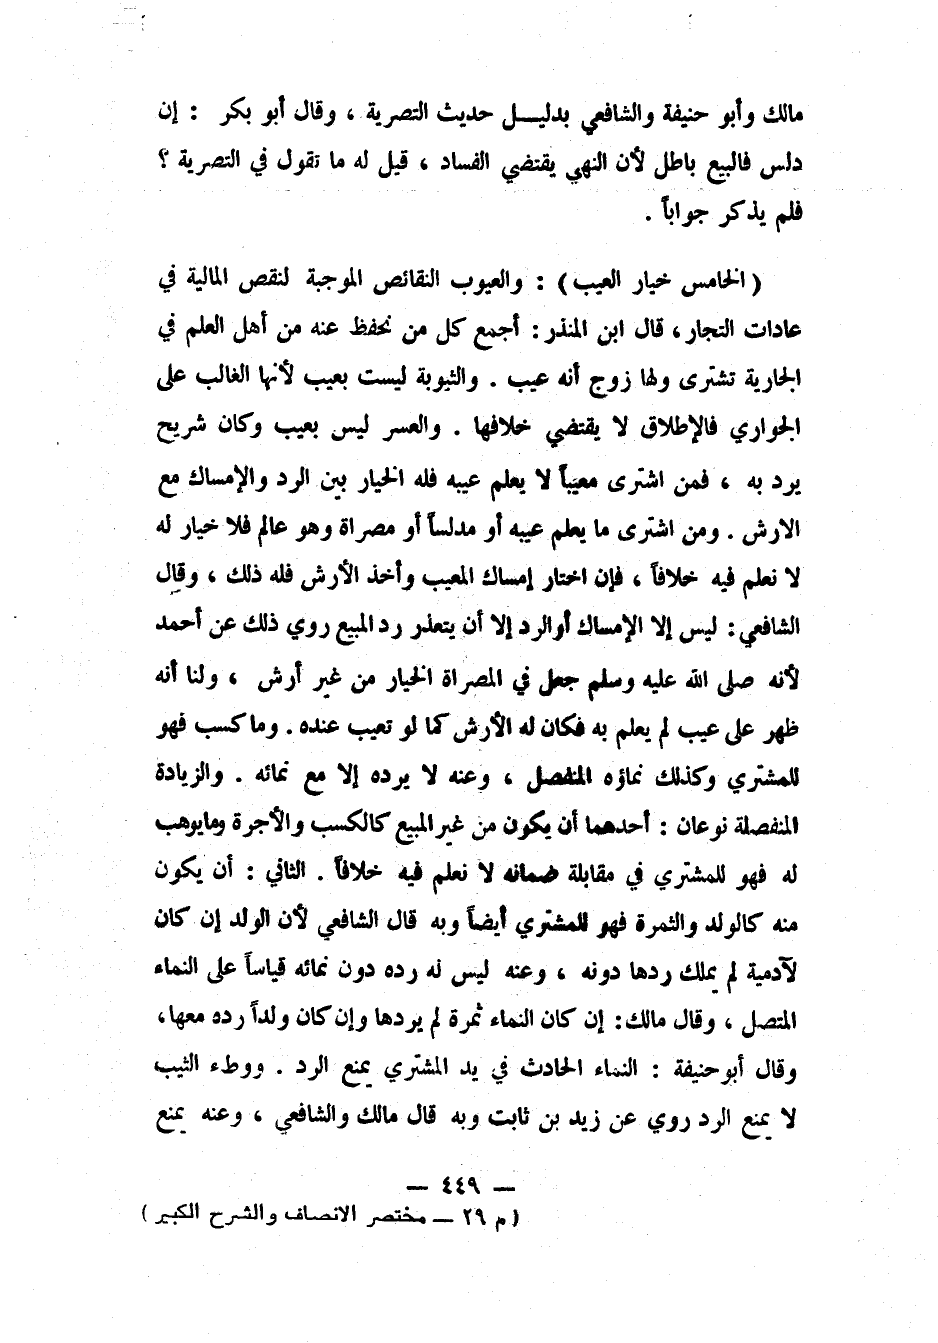 مالك وأبو حنيفة والشافعي بدليل حديث التصرية ، وقال أبو بكر : إن
دلس فالبيع باطل لأن النهي يقتضي الفساد ، قيل له ما تقول في التصرية ؟
فلم يذكر جواباً .
( الخامس خيار العيب ) : والعيوب النقائص الموجبة لنقص المالية في
عادات التجار ، قال ابن المنذر : أجمع كل من نحفظ عنه من أهل العلم في
الجارية تشترى ولها زوج أنه عيب . والثيوبة ليست بعيب لأنها الغالب على
الجواري فالإطلاق لا يقتضي خلافها . والعسر ليس بعيب وكان شريح
يرد به ، فمن اشترى معيباً لا يعلم عيبه فله الخيار بين الرد والإمساك مع
الارش . ومن اشترى ما يعلم عيبه أو مدلساً أو مصراة وهو عالم فلا خيار له
لا نعلم فيه خلافاً ، فإن اختار إمساك المعيب وأخذ الأرش فله ذلك ، وقال
الشافعي : ليس إلا الإمساك أو الرد إلا أن يتعذر رد المبيع روي ذلك عن أحمد
لأنه صلى الله عليه وسلم جعل في المصراة الخيار من غير أرش ، ولنا أنه
ظهر على عيب لم يعلم به فكان له الأرش كما لو تعيب عنده . وما كسب فهو
للمشتري وكذلك نماؤه المنفصل ، وعنه لا يرده إلا مع نمائه . والزيادة
المنفصلة نوعان : أحدهما أن يكون من غير المبيع كالكسب والأجرة وما يوهب
له فهو للمشتري في مقابلة ضمانه لا نعلم فيه خلافاً . الثاني : أن يكون
منه كالولد والثمرة فهو للمشتري أيضاً وبه قال الشافعي لأن الولد إن كان
لآدمية لم يملك ردها دونه ، وعنه ليس له رده دون نمائه قياساً على النماء
المتصل ، وقال مالك : إن كان النماء ثمرة لم يردها وإن كان ولداً رده معها ،
وقال أبو حنيفة : النماء الحادث في يد المشتري يمنع الرد . ووطء الثيب
لا يمنع الرد روي عن زيد بن ثابت وبه قال مالك والشافعي ، وعنه يمنع
— ٤٤٩ —
( م ٢٩ — مختصر الانصاف والشرح الكبير )